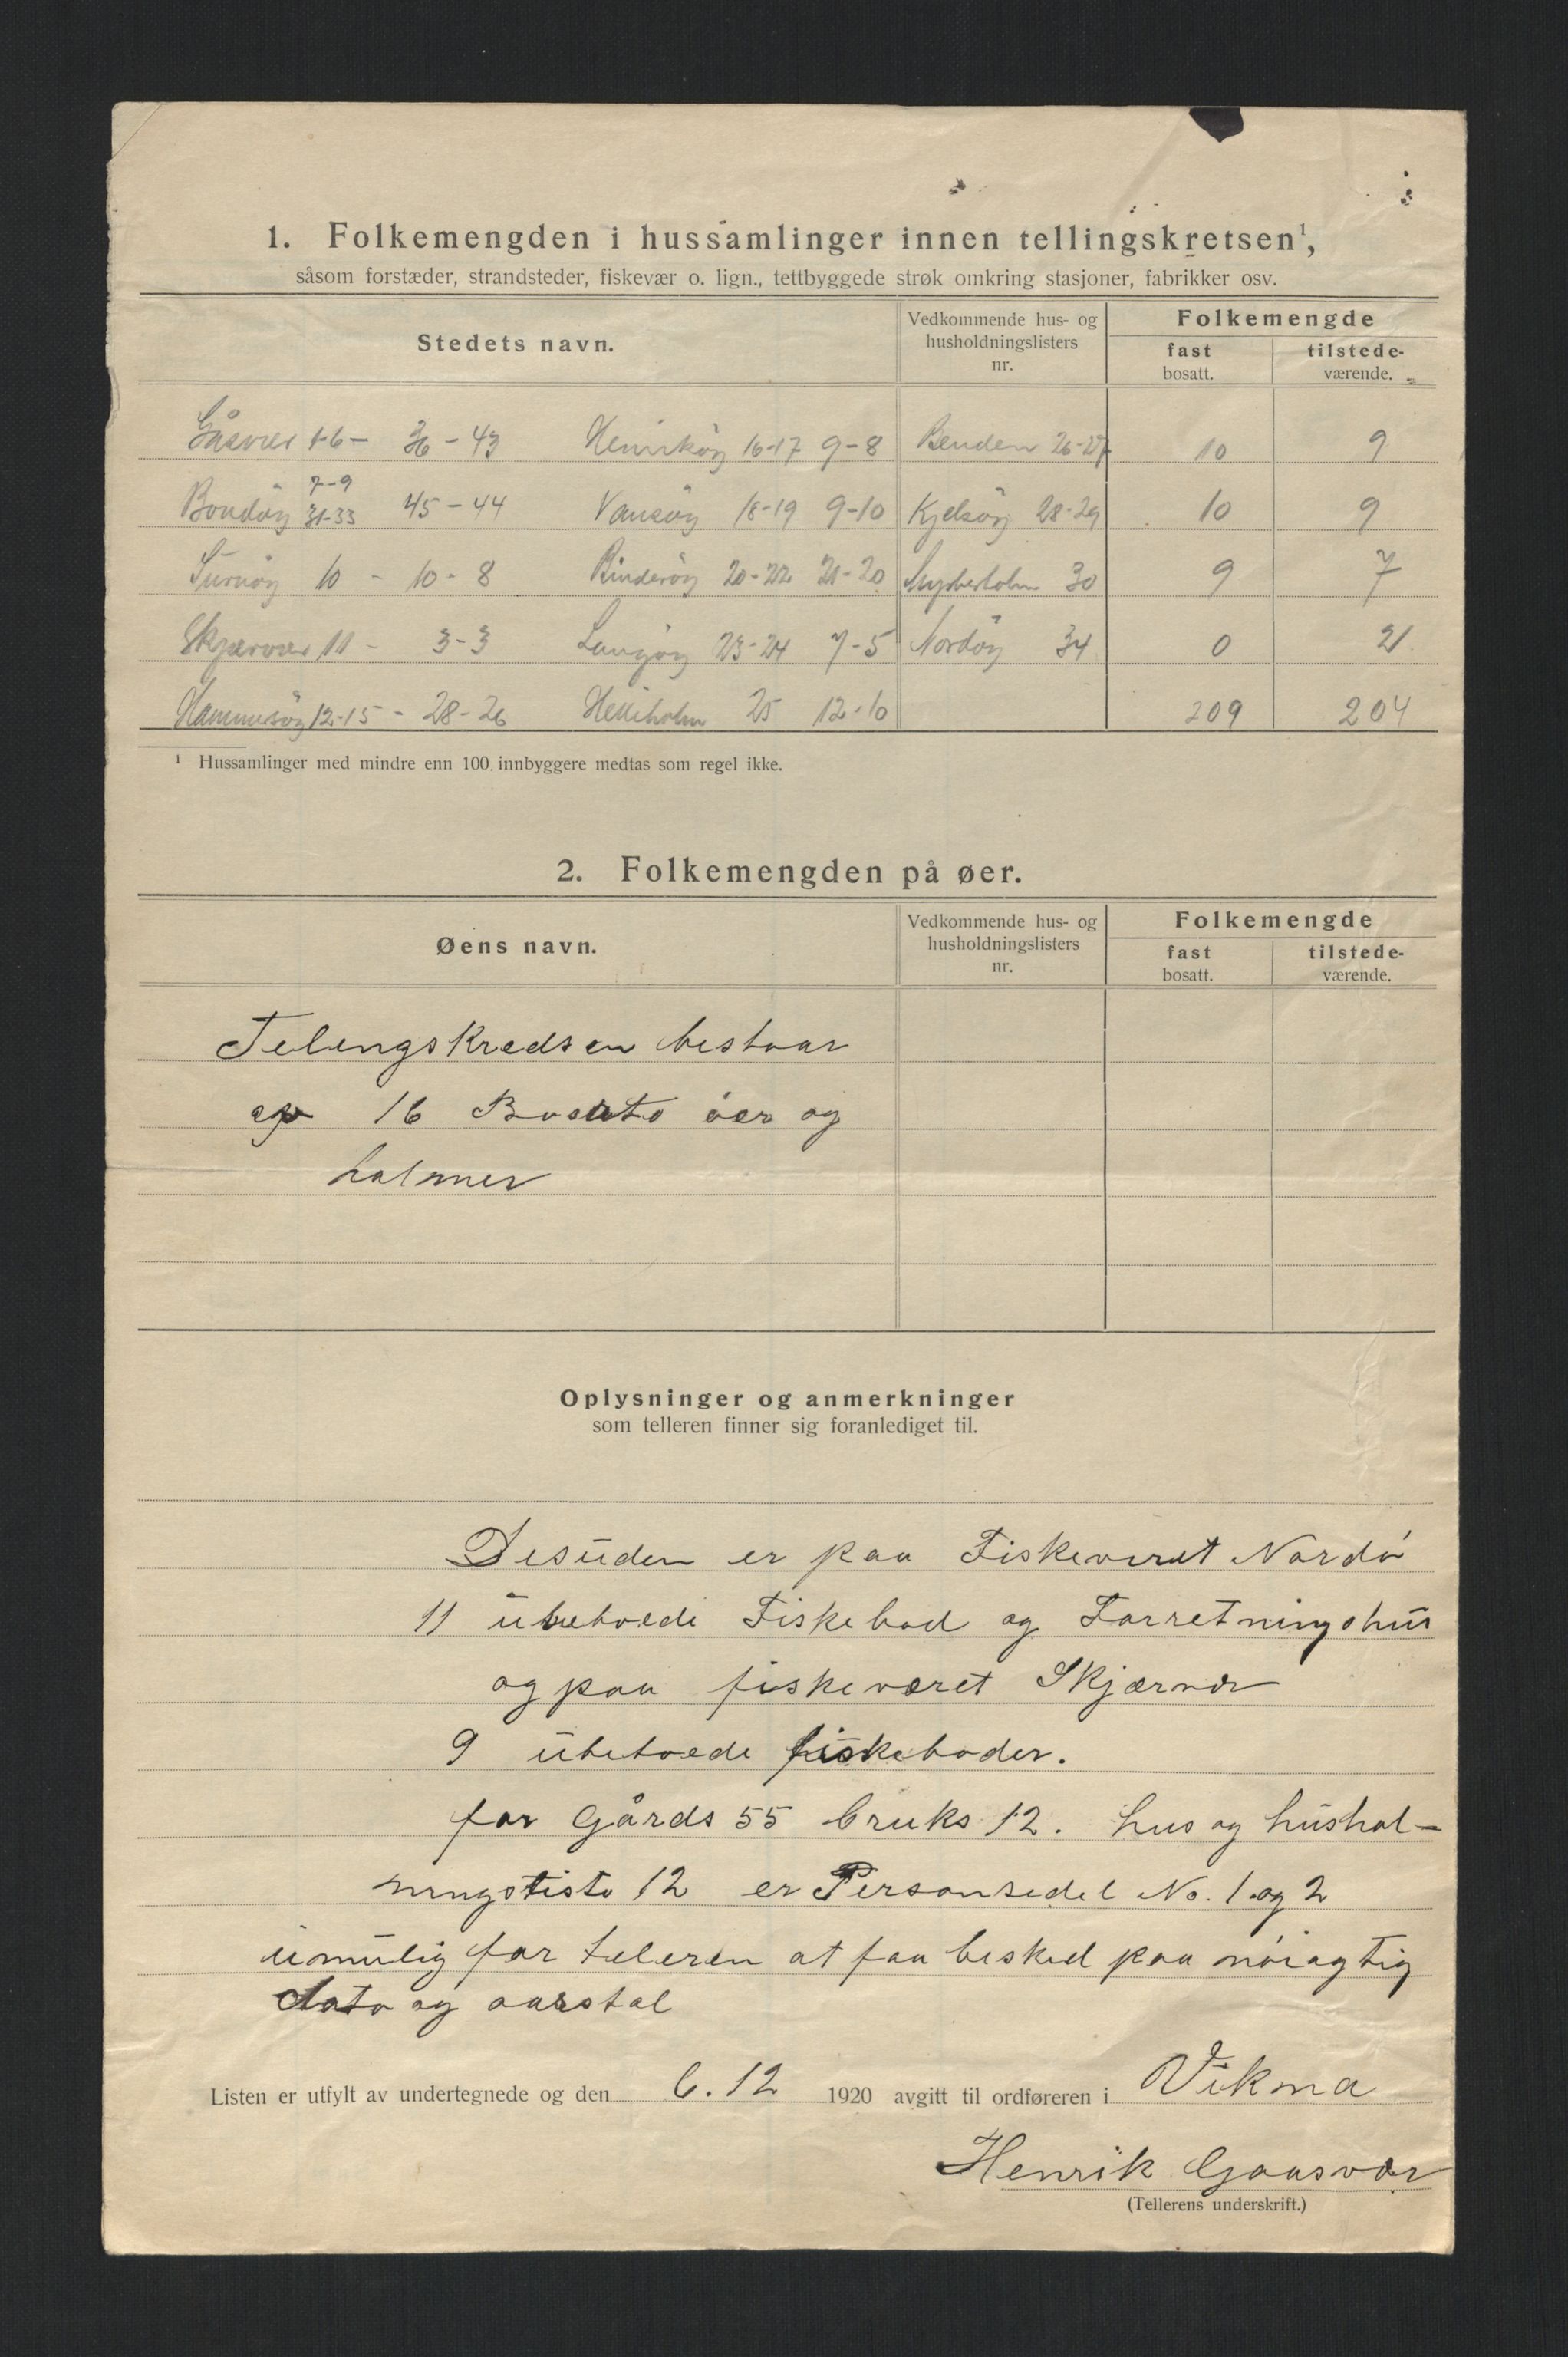 1. Folkemengden i hussamlinger innen tellingskretsen¹,
såsom forstæder, strandsteder, fiskevær o. lign., tettbyggede strøk omkring stasjoner, fabrikker osv.
Stedets navn.
Vedkommende hus- og husholdningslisters nr.
Folkemengde
fast bosatt.
tilstede-værende.
Gåsvær 1-6 – 36 – 43 16-17 9-8 Benden 26-27 10 9
7-9
Bondøy 31-33 45 – 44 Vansøy 18-19 9-10 Kjelsøy 28-29 10 9
10 – 10 - 8 Rinderöy 20-22 21-20 30 9 7
Skjærvær 11 - 3-3 Langöy 23-24 7-5 Nordöy 34 0 21
12-15 - 28-26 Helleholm 25 12-10 209 204
¹ Hussamlinger med mindre enn 100 innbyggere medtas som regel ikke.
2. Folkemengden på øer.
Øens navn.
Vedkommende hus- og husholdningslisters nr.
Folkemengde
fast bosatt.
tilstede-værende.
Telengskredsen bestaar
av 16 Bosato öer og
holmer
Oplysninger og anmerkninger
som telleren finner sig foranlediget til.
Desuden er paa Fiskeveret Nordö
11 ubeboede Fiskebod og Forretningshus
og paa fiskeværet Skjærvær
9 ubeboede fiskeboder.
for Gårds 55 bruks 12. hus og hushol-
ningsliste 12 er Personsedel No. 1 og 2
umulig for teleren at faa besked paa nöiagtig
dato og aarstal
Listen er utfylt av undertegnede og den 6.12 1920 avgitt til ordføreren i Vikna
Henrik Gaasvær
(Tellerens underskrift.)